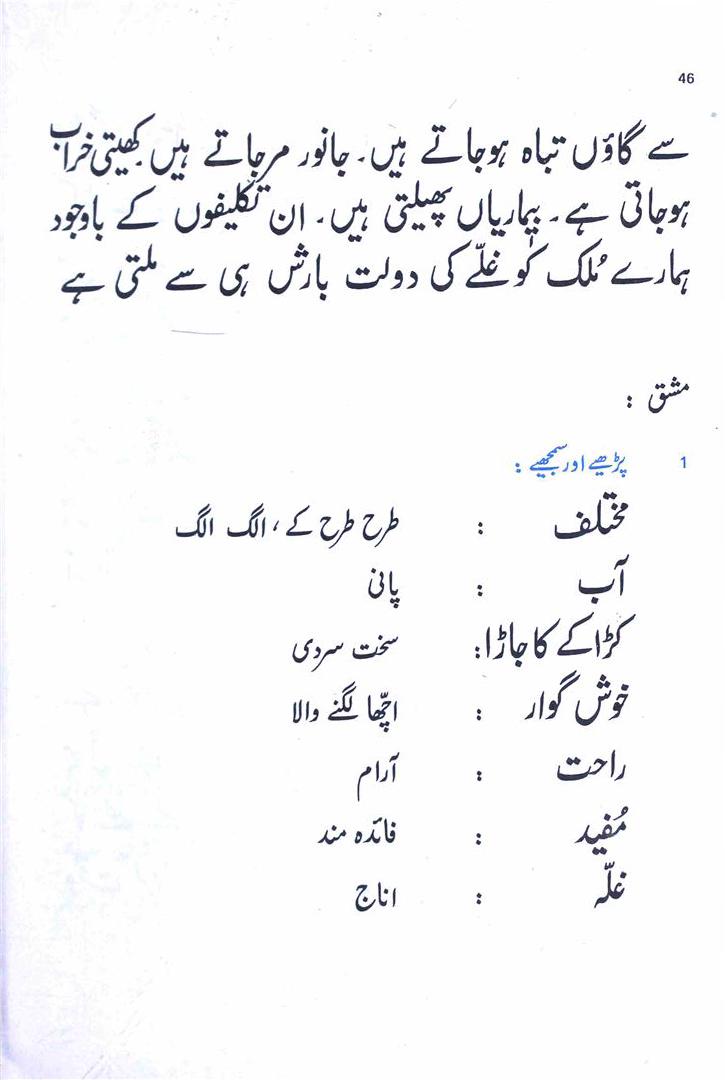 46
سے گاؤں تباہ ہوجاتے ہیں۔ جانور مرجاتے ہیں کھیتی خراب
ہوجاتی ہے۔ بیماریاں پھیلتی ہیں۔ ان تکلیفوں کے باوجود
ہمارے مُلک کو غلّے کی دولت بارش ہی سے ملتی ہے
مشق :
1 پڑھیے اور سمجھیے :
مختلف : طرح طرح کے ، الگ الگ
آب : پانی
کڑاکے کا جاڑا : سخت سردی
خوش گوار : اچّھا لگنے والا
راحت : آرام
مُفید : فائدہ مند
غلّہ : اناج